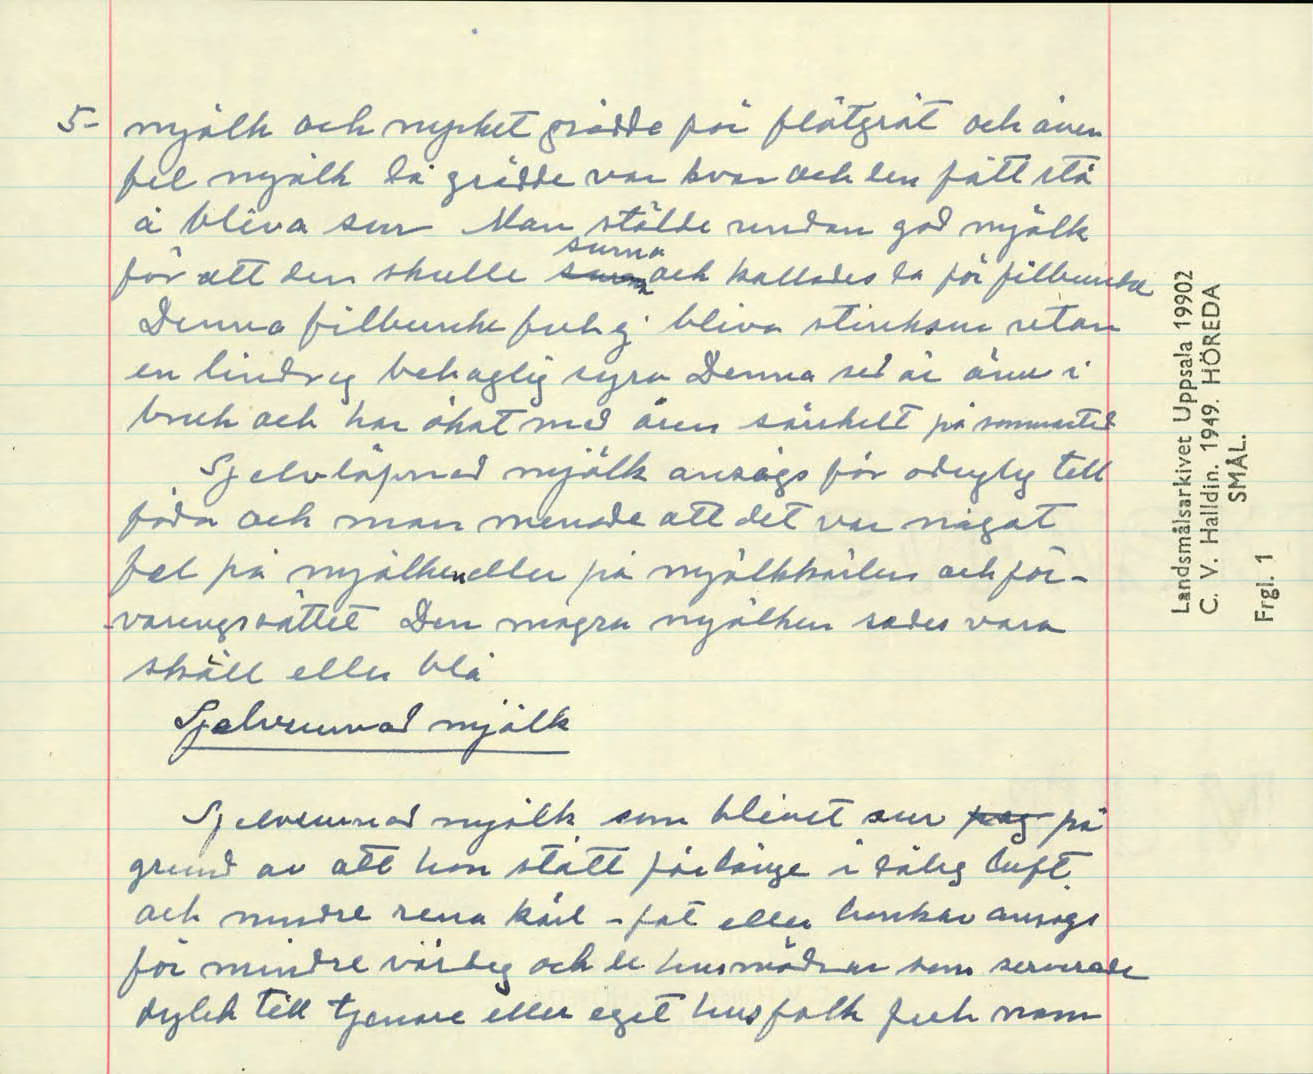 5- mjölk och mycket grädde för flötgröt och även
fil mjölk då grädde var kvar och den fått stå
å bliva sur Man stälde undan god mjölk
för att den skulle surna och kallades då för filbunke
Denna filbunke fick ej bliva stinksur utan
en lindrig behaglig syra Denna sed är ännu i
bruk och har ökat med åren särskelt på sommartid
Sjelvlöpnad mjölk ansågs för oduglig till
föda och man menade att det var något
fel på mjölken eller på mjölkkärlen och för-
-varingssättet Den magra mjölken sades vara
skäll eller blå
Sjelvsurnad mjölk
Sjelvsurnad mjölk som blivet sur på
grund av att hon stått för länge i dålig luft
och mindre rena kärl - fat eller bunkar ansågs
för mindre värdig och de husmödrar som serverade
dylik till tjenare eller eget husfolk fick namn
Landsmålsarkivet Uppsala 19902
C. V. Halldin. 1949. HÖREDA
SMÅL.
Frgl. 1